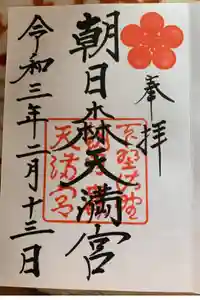 奉拝
朝日森天満宮
令和三年二月十三日